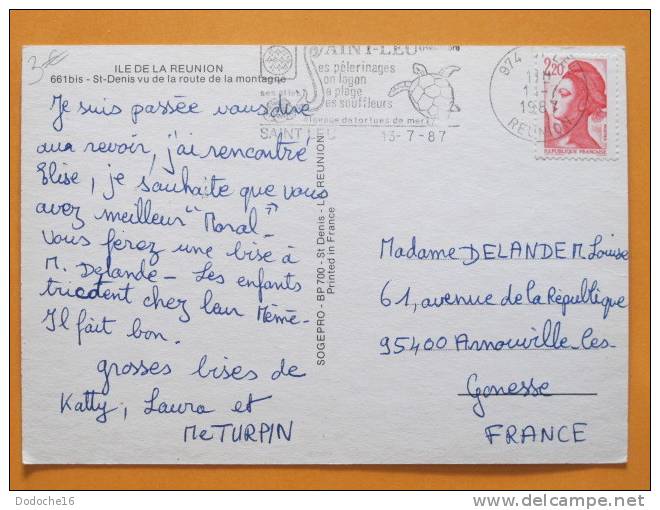 3€
ILE DE LA REUNION
661bis - St-Denis vu de la route de la montagne
SAINT-LEU
ses pèlerinages
son lagon
sa plage
ses souffleurs
ferme de tortues de mer
SAINT LEU 13-7-87
974
13-7
1987
REUNION
2,20
REPUBLIQUE FRANÇAISE
Je suis passée vous dire
au revoir, j'ai rencontré
Elise, je souhaite que vous
avez meilleur "Moral"-
Vous ferez une bise à
M. Delande - Les enfants
tricotent chez leur Mémé-
Il fait bon.
grosses bises de
Katty, Laura et
Me TURPIN
SOGEPRO - BP 700 - St Denis - LA REUNION
Printed in France
Madame DELANDE M. Louise
61, avenue de la République
95400 Arnouville-les-
Gonesse
FRANCE
Dodoche16
delcampe.net